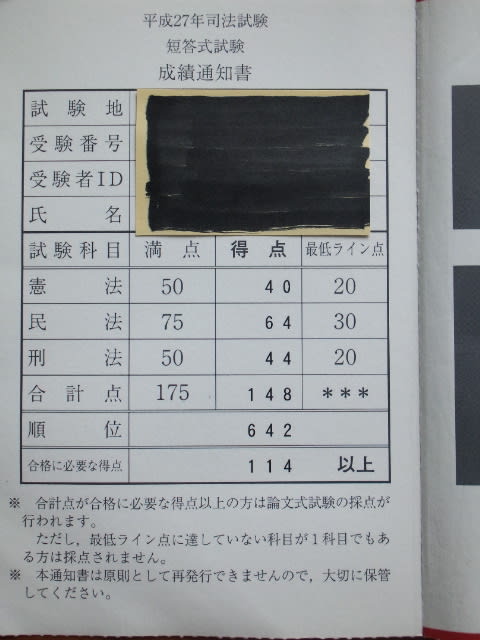 平成27年司法試験
短答式試験
成績通知書
試験地
受験番号
受験者ID
氏名
試験科目 満点 得点 最低ライン点
憲法 50 40 20
民法 75 64 30
刑法 50 44 20
合計点 175 148 ***
順位 642
合格に必要な得点 114 以上
※ 合計点が合格に必要な得点以上の方は論文式試験の採点が
行われます。
ただし，最低ライン点に達していない科目が１科目でもあ
る方は採点されません。
※ 本通知書は原則として再発行できませんので，大切に保管
してください。